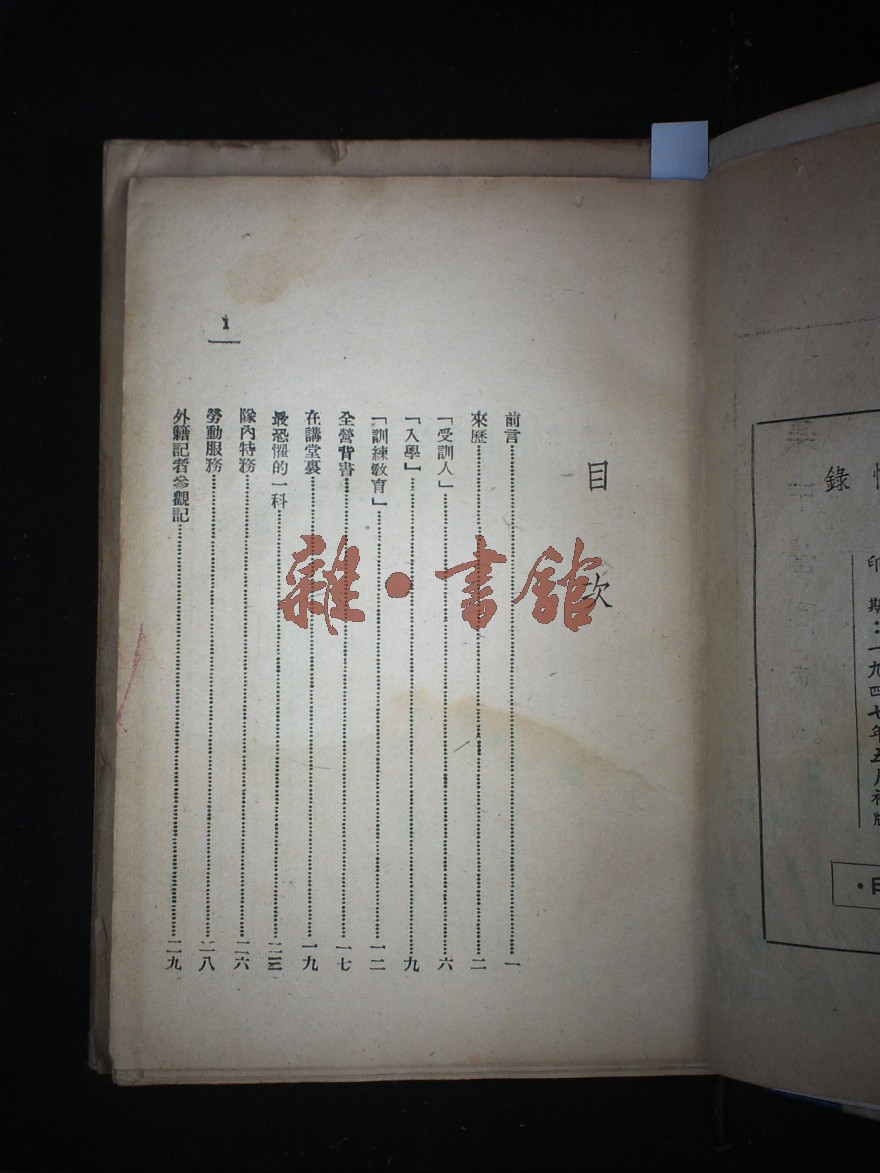 錄
印
期：一九四七年五月初版
印
目次
前言 一
來歷 二
「受訓人」 六
「入學」 九
「訓練教育」 一二
全營背書 一七
在講堂裏 一九
最恐懼的一科 二三
隊內特務 二六
勞動服務 二八
外籍記者參觀記 二九
1
雜·書館